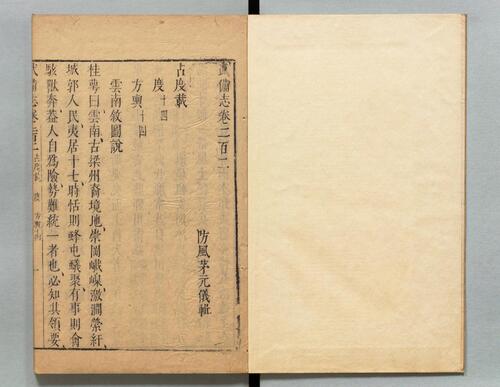 武備志卷二百二
防風茅元儀輯
占度載
度十四
方輿十四
雲南敘圖說
桂萼曰雲南古梁州裔境地崇岡巇嵲激澗縈紆
城郭人民夷居十七時恬則蜂屯蟻聚有事則會
駭獸奔蓋人自為險勢難統一者也必知其領要
武備志卷二百二 占度載 度 方輿十四 一